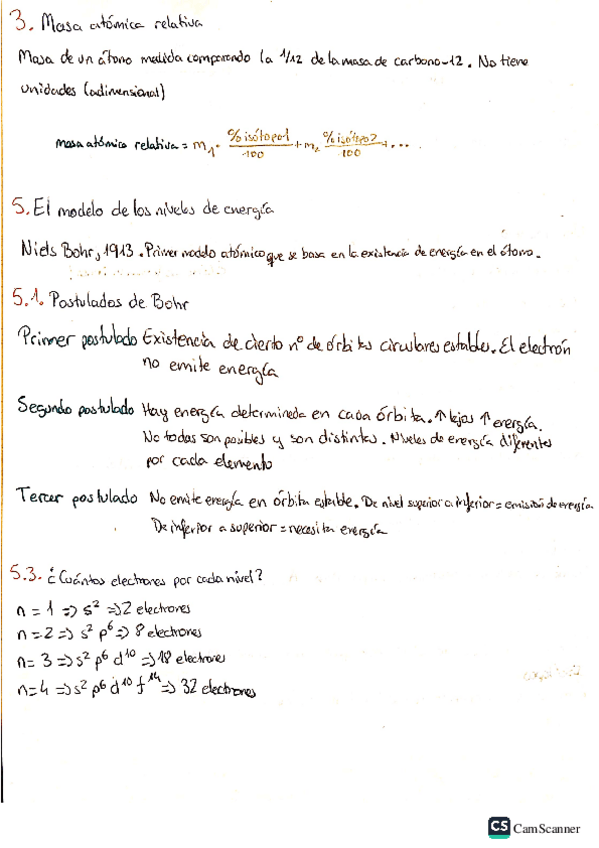 3. Masa atómica relativa
Masa de un átomo medida comparando la 1/12 de la masa de carbono-12. No tiene
unidades (adimensional)
masa atómica relativa = m₁ · % isótopo1/100 + m₂ % isótopo2/100 + ...
5. El modelo de los niveles de energía
Niels Bohr, 1913. Primer modelo atómico que se basa en la existencia de energía en el átomo.
5.1. Postulados de Bohr
Primer postulado Existencia de cierto nº de órbitas circulares estables. El electrón
no emite energía
Segundo postulado Hay energía determinada en cada órbita. ↑ lejos ↑ energía.
No todas son posibles y son distintas. Niveles de energía diferentes
por cada elemento
Tercer postulado No emite energía en órbita estable. De nivel superior a inferior = emisión de energía
De inferior a superior = necesita energía
5.3. ¿Cuántos electrones por cada nivel?
n = 1 => s² => 2 electrones
n = 2 => s² p⁶ => 8 electrones
n = 3 => s² p⁶ d¹⁰ => 18 electrones
n = 4 => s² p⁶ d¹⁰ f¹⁴ => 32 electrones
CS CamScanner